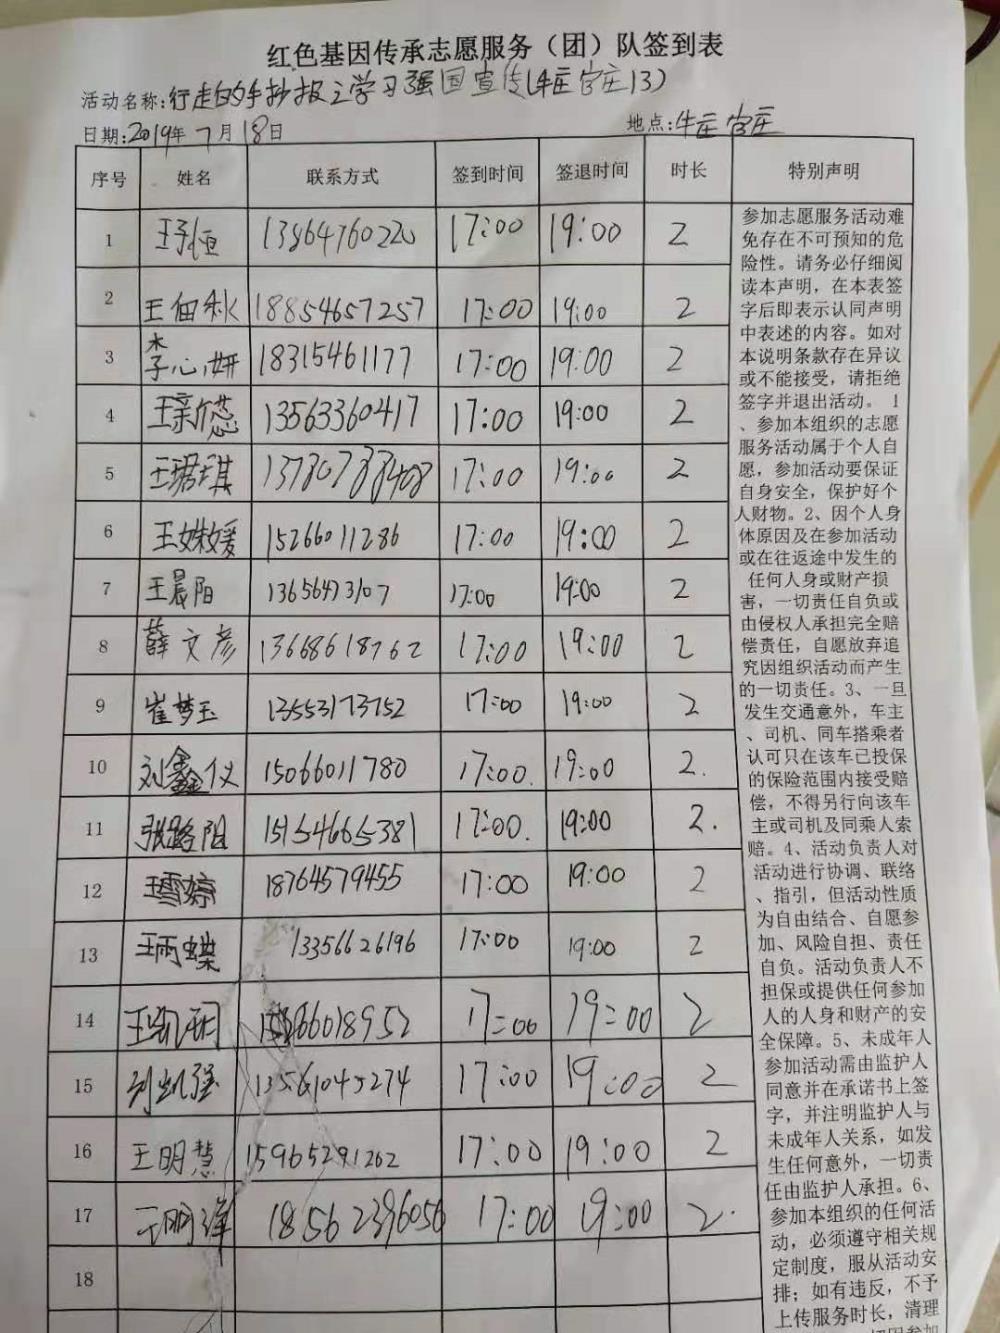 红色基因传承志愿服务（团）队签到表
活动名称:行走的手抄报之学习强国宣传(牛庄官庄13)
日期:2019年7月18日 地点:牛庄官庄
序号 姓名 联系方式 签到时间 签退时间 时长 特别声明
1 王子恒 13864760220 17:00 19:00 2
2 王佃秋 18854657257 17:00 19:00 2
3 李心妍 18315461177 17:00 19:00 2
4 13563360417 17:00 19:00 2
5 王珺琪 17:00 19:00 2
6 15266011286 17:00 19:00 2
7 王晨阳 13656473107 17:00 19:00 2
8 薛文彦 13668618762 17:00 19:00 2
9 崔梦玉 13553173752 17:00 19:00 2
10 刘鑫仪 15066011780 17:00. 19:00 2.
11 张路阳 15154665381 17:00. 19:00 2.
12 王雪婷 18764579455 17:00 19:00 2
13 王雨蝶 13356626196 17:00 19:00 2
14 17:00 19:00 2
15 刘凯强 13561045274 17:00 19:00 2
16 王明慧 15965291262 17:00 19:00 2
17 18562396056 17:00 19:00 2.
18
参加志愿服务活动难
免存在不可预知的危
险性。请务必仔细阅
读本声明，在本表签
字后即表示认同声明
中表述的内容。如对
本说明条款存在异议
或不能接受，请拒绝
签字并退出活动。1
、参加本组织的志愿
服务活动属于个人自
愿，参加活动要保证
自身安全，保护好个
人财物。2、因个人身
体原因及在参加活动
或在往返途中发生的
任何人身或财产损
害，一切责任自负或
由侵权人承担完全赔
偿责任，自愿放弃追
究因组织活动而产生
的一切责任。3、一旦
发生交通意外，车主
、司机、同车搭乘者
认可只在该车已投保
的保险范围内接受赔
偿，不得另行向该车
主或司机及同乘人索
赔。4、活动负责人对
活动进行协调、联络
、指引，但活动性质
为自由结合、自愿参
加、风险自担、责任
自负。活动负责人不
担保或提供任何参加
人的人身和财产的安
全保障。5、未成年人
参加活动需由监护人
同意并在承诺书上签
字，并注明监护人与
未成年人关系，如发
生任何意外，一切责
任由监护人承担。6、
参加本组织的任何活
动，必须遵守相关规
定制度，服从活动安
排；如有违反，不予
上传服务时长，清理